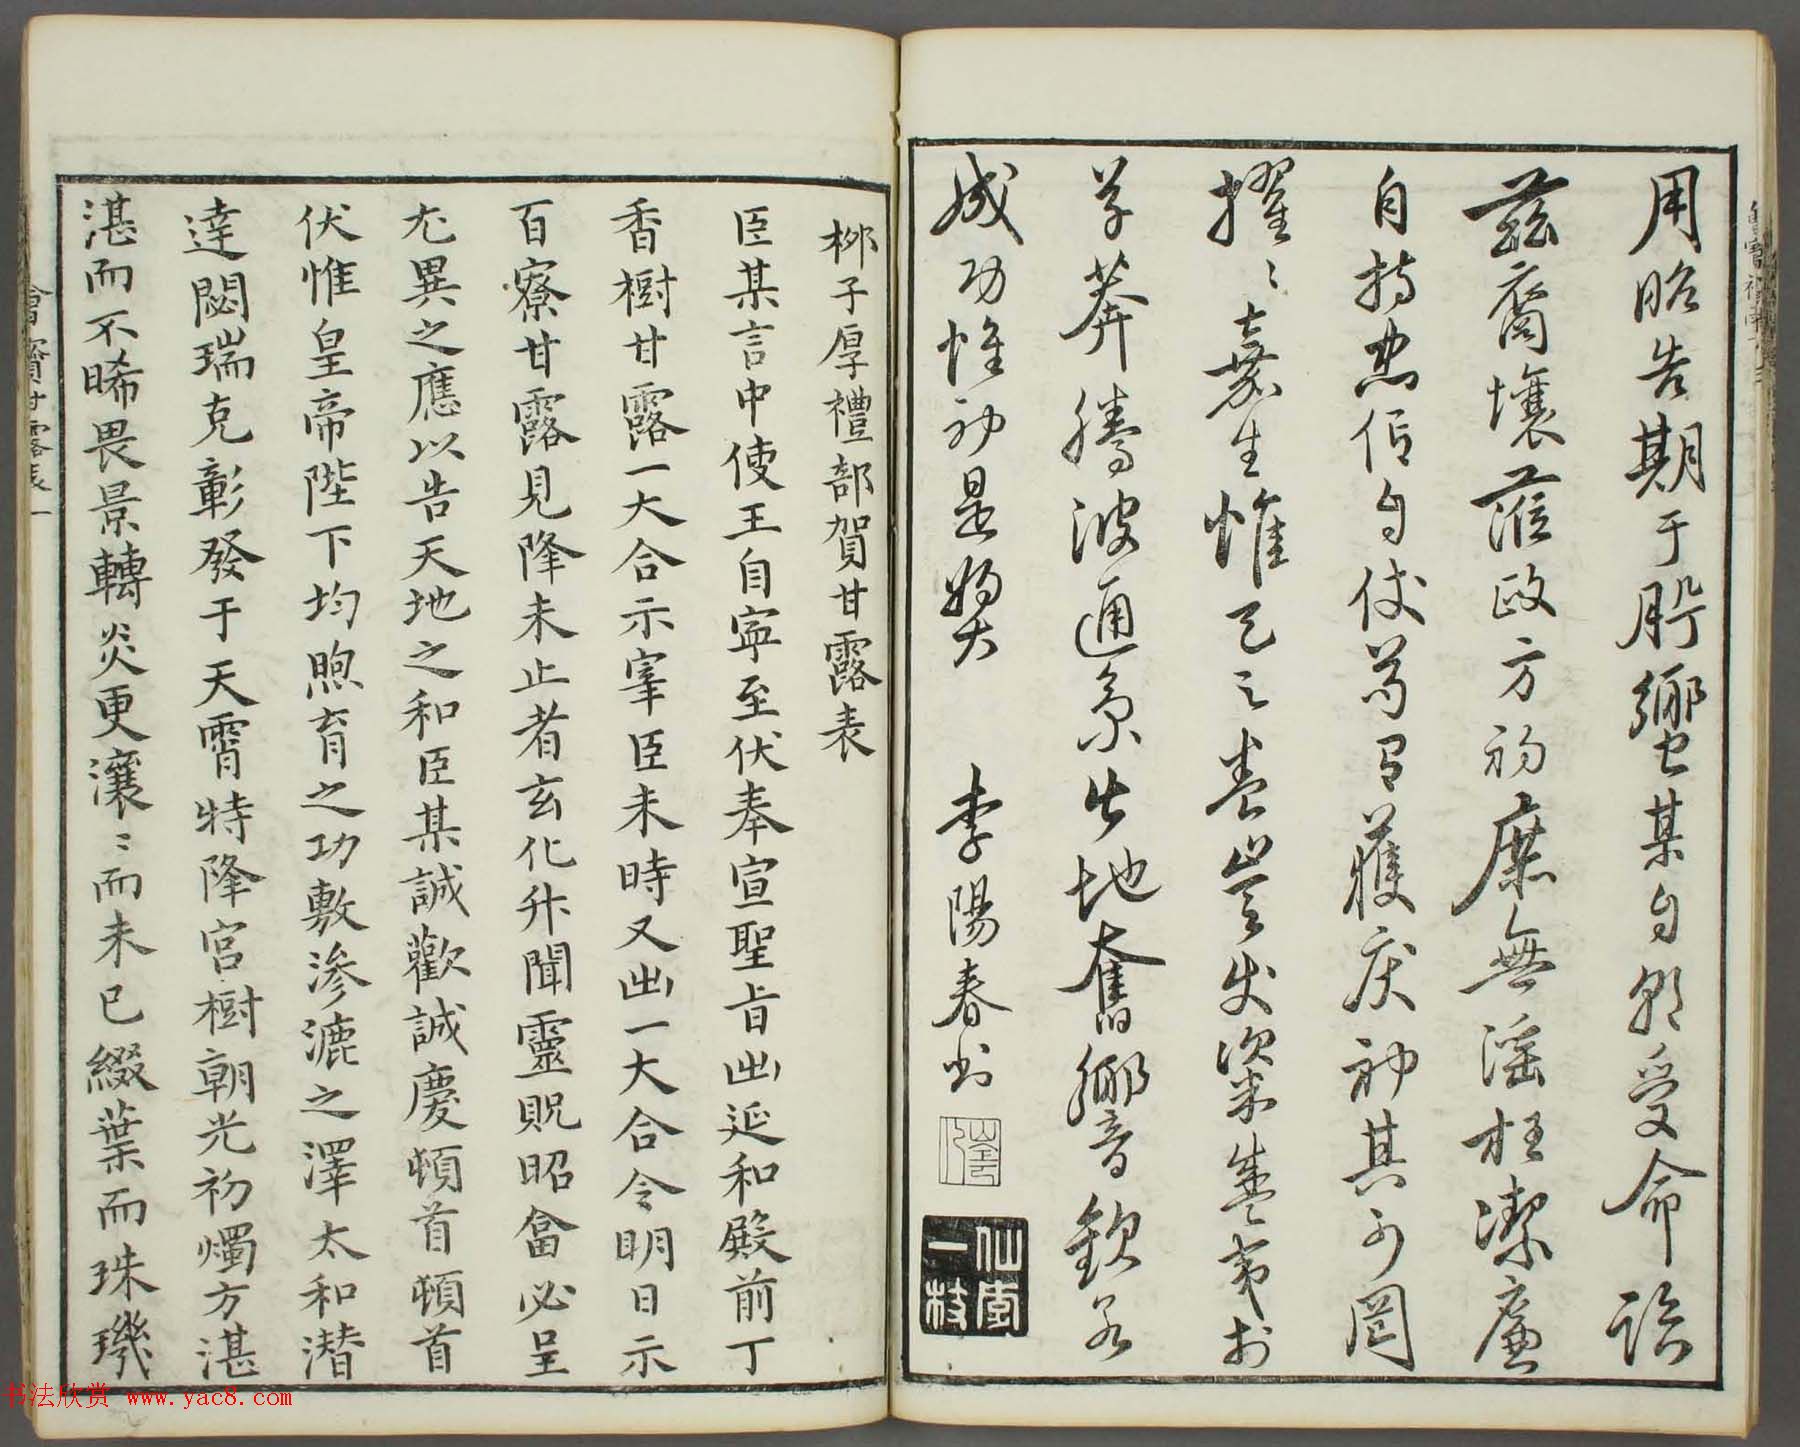 用昭告期于肸蠁某自朝受命詒
茲裔壤蒞政方初庶無淫枉潔廉
自持忠信自仗苟有獲戾神其可罔
擢擢嘉生惟天之養豈使粢盛夷於
草莽騰波通氣出地奮響欽若
成功惟神是獎
李陽春書
仙李一枝
柳子厚禮部賀甘露表
臣某言中使王自寧至伏奉宣聖旨出延和殿前丁
香樹甘露一大合示宰臣未時又出一大合令明日示
百寮甘露見降未止者玄化升聞靈貺昭畣必呈
尤異之應以告天地之和臣某誠歡誠慶頓首頓首
伏惟皇帝陛下均煦育之功敷滲漉之澤太和潛
達閟瑞克彰發于天霄特降宮樹朝光初燭方湛
湛而不晞畏景轉炎更瀼〻而未已綴葉而珠璣
书法欣赏 www.yac8.com